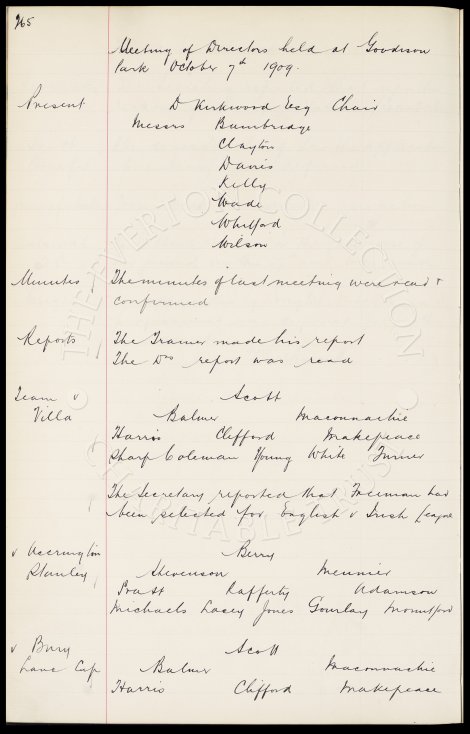 265
Meeting of Directors held at Goodison
Park October 7th 1909.
Present D Kirkwood Esq Chair
Messrs Bainbridge
Clayton
Davies
Kelly
Wade
Whitford
Wilson
Minutes The minutes of last meeting were read &
confirmed
Reports The Trainer made his report
The Drs report was read
Team v Scott
Villa Balmer Maconnachie
Harris Clifford Makepeace
Sharp Coleman Young White Turner
The Secretary reported that Freeman had
been selected for English v Irish League
v Accrington Berry
Stanley Stevenson Meunier
Pratt Rafferty Adamson
Michaels Lacey Jones Gourlay Mountford
v Bury Scott
Lancs Cup Balmer Maconnachie
Harris Clifford Makepeace
THE EVERTON COLLECTION
CHARITABLE TRUST